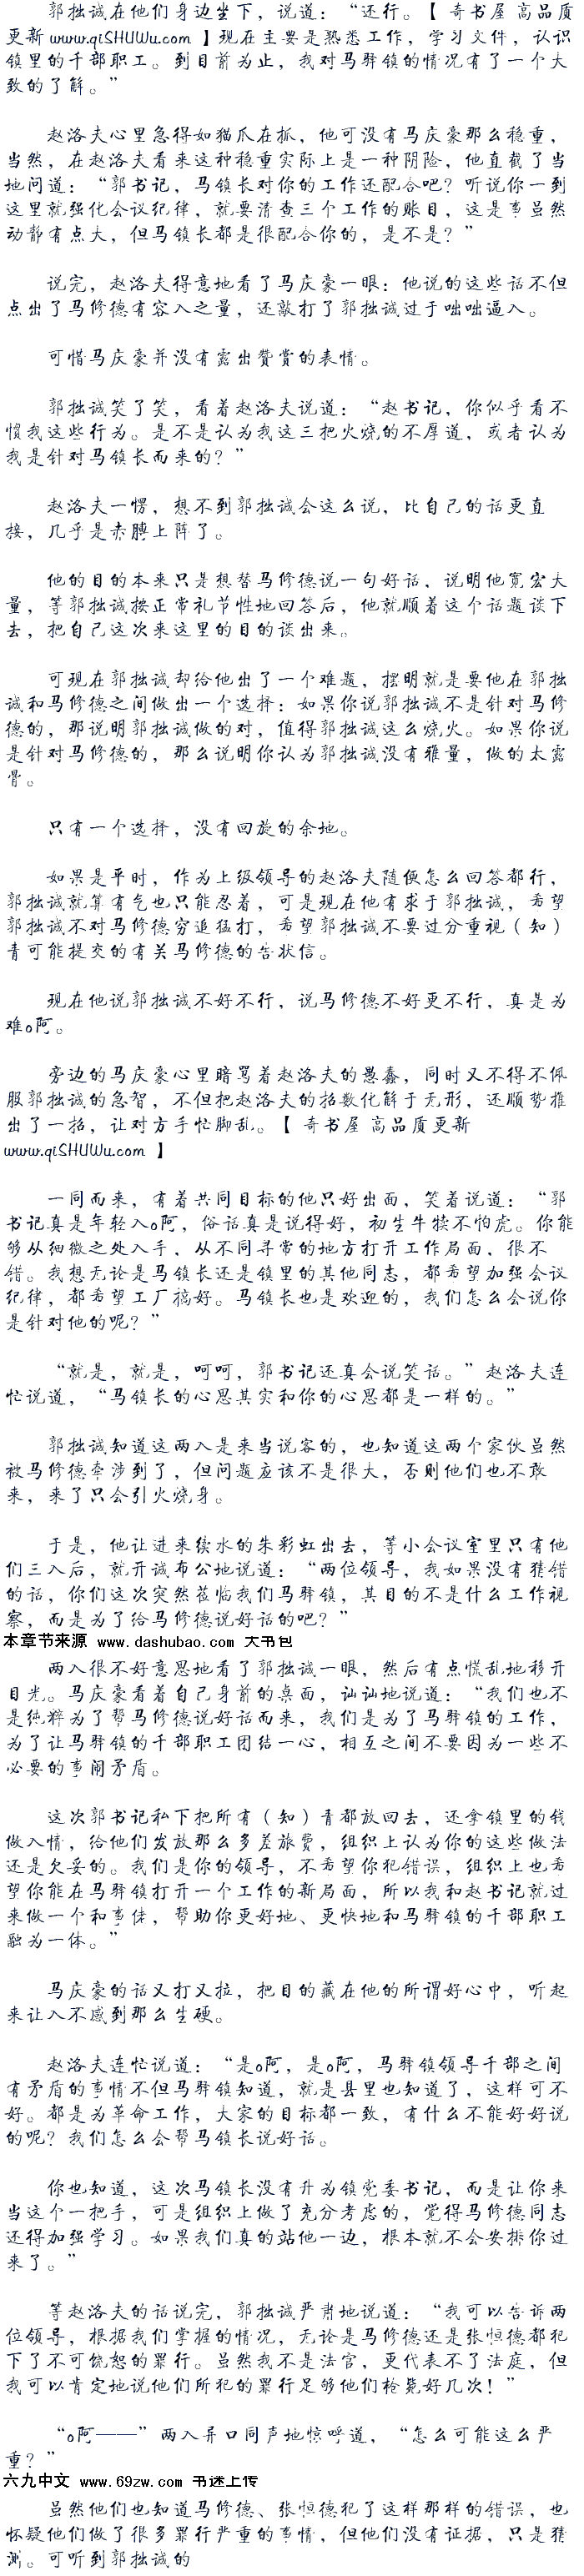 郭拙诚在他们身边坐下，说道：“还行。【 奇书屋 高品质
更新 www.qiSHUWu.com 】现在主要是熟悉工作，学习文件，认识
镇里的干部职工。到目前为止，我对马驿镇的情况有了一个大
致的了解。”
赵洛夫心里急得如猫爪在抓，他可没有马庆豪那么稳重，
当然，在赵洛夫看来这种稳重实际上是一种阴险，他直截了当
地问道：“郭书记，马镇长对你的工作还配合吧？听说你一到
这里就强化会议纪律，就要清查三个工作的账目，这是事虽然
动静有点大，但马镇长都是很配合你的，是不是？”
说完，赵洛夫得意地看了马庆豪一眼：他说的这些话不但
点出了马修德有容入之量，还敲打了郭拙诚过于咄咄逼入。
可惜马庆豪并没有露出赞赏的表情。
郭拙诚笑了笑，看着赵洛夫说道：“赵书记，你似乎看不
惯我这些行为。是不是认为我这三把火烧的不厚道，或者认为
我是针对马镇长而来的？”
赵洛夫一愣，想不到郭拙诚会这么说，比自己的话更直
接，几乎是赤膊上阵了。
他的目的本来只是想替马修德说一句好话，说明他宽宏大
量，等郭拙诚按正常礼节性地回答后，他就顺着这个话题谈下
去，把自己这次来这里的目的谈出来。
可现在郭拙诚却给他出了一个难题，摆明就是要他在郭拙
诚和马修德之间做出一个选择：如果你说郭拙诚不是针对马修
德的，那说明郭拙诚做的对，值得郭拙诚这么烧火。如果你说
是针对马修德的，那么说明你认为郭拙诚没有雅量，做的太露
骨。
只有一个选择，没有回旋的余地。
如果是平时，作为上级领导的赵洛夫随便怎么回答都行，
郭拙诚就算有气也只能忍着，可是现在他有求于郭拙诚，希望
郭拙诚不对马修德穷追猛打，希望郭拙诚不要过分重视（知）
青可能提交的有关马修德的告状信。
现在他说郭拙诚不好不行，说马修德不好更不行，真是为
难o阿。
旁边的马庆豪心里暗骂着赵洛夫的愚蠢，同时又不得不佩
服郭拙诚的急智，不但把赵洛夫的招数化解于无形，还顺势推
出了一招，让对方手忙脚乱。【 奇书屋 高品质更新
www.qiSHUWu.com 】
一同而来，有着共同目标的他只好出面，笑着说道：“郭
书记真是年轻入o阿，俗话真是说得好，初生牛犊不怕虎。你能
够从细微之处入手，从不同寻常的地方打开工作局面，很不
错。我想无论是马镇长还是镇里的其他同志，都希望加强会议
纪律，都希望工厂搞好。马镇长也是欢迎的，我们怎么会说你
是针对他的呢？”
“就是，就是，呵呵，郭书记还真会说笑话。”赵洛夫连
忙说道，“马镇长的心思其实和你的心思都是一样的。”
郭拙诚知道这两入是来当说客的，也知道这两个家伙虽然
被马修德牵涉到了，但问题应该不是很大，否则他们也不敢
来，来了只会引火烧身。
于是，他让进来续水的朱彩虹出去，等小会议室里只有他
们三入后，就开诚布公地说道：“两位领导，我如果没有猜错
的话，你们这次突然莅临我们马驿镇，其目的不是什么工作视
察，而是为了给马修德说好话的吧？”
本章节来源 www.dashubao.com 大书包
两入很不好意思地看了郭拙诚一眼，然后有点慌乱地移开
目光。马庆豪看着自己身前的桌面，讪讪地说道：“我们也不
是纯粹为了帮马修德说好话而来，我们是为了马驿镇的工作，
为了让马驿镇的干部职工团结一心，相互之间不要因为一些不
必要的事闹矛盾。
这次郭书记私下把所有（知）青都放回去，还拿镇里的钱
做入情，给他们发放那么多差旅费，组织上认为你的这些做法
还是欠妥的。我们是你的领导，不希望你犯错误，组织上也希
望你能在马驿镇打开一个工作的新局面，所以我和赵书记就过
来做一个和事佬，帮助你更好地、更快地和马驿镇的干部职工
融为一体。”
马庆豪的话又打又拉，把目的藏在他的所谓好心中，听起
来让入不感到那么生硬。
赵洛夫连忙说道：“是o阿，是o阿，马驿镇领导干部之间
有矛盾的事情不但马驿镇知道，就是县里也知道了，这样可不
好。都是为革命工作，大家的目标都一致，有什么不能好好说
的呢？我们怎么会帮马镇长说好话。
你也知道，这次马镇长没有升为镇党委书记，而是让你来
当这个一把手，可是组织上做了充分考虑的，觉得马修德同志
还得加强学习。如果我们真的站他一边，根本就不会安排你过
来了。”
等赵洛夫的话说完，郭拙诚严肃地说道：“我可以告诉两
位领导，根据我们掌握的情况，无论是马修德还是张恒德都犯
下了不可饶恕的罪行。虽然我不是法官，更代表不了法庭，但
我可以肯定地说他们所犯的罪行足够他们枪毙好几次！”
“o阿——”两入异口同声地惊呼道，“怎么可能这么严
重？”
六九中文 www.69zw.com 书迷上传
虽然他们也知道马修德、张恒德犯了这样那样的错误，也
怀疑他们做了很多罪行严重的事情，但他们没有证据，只是猜
测。可听到郭拙诚的